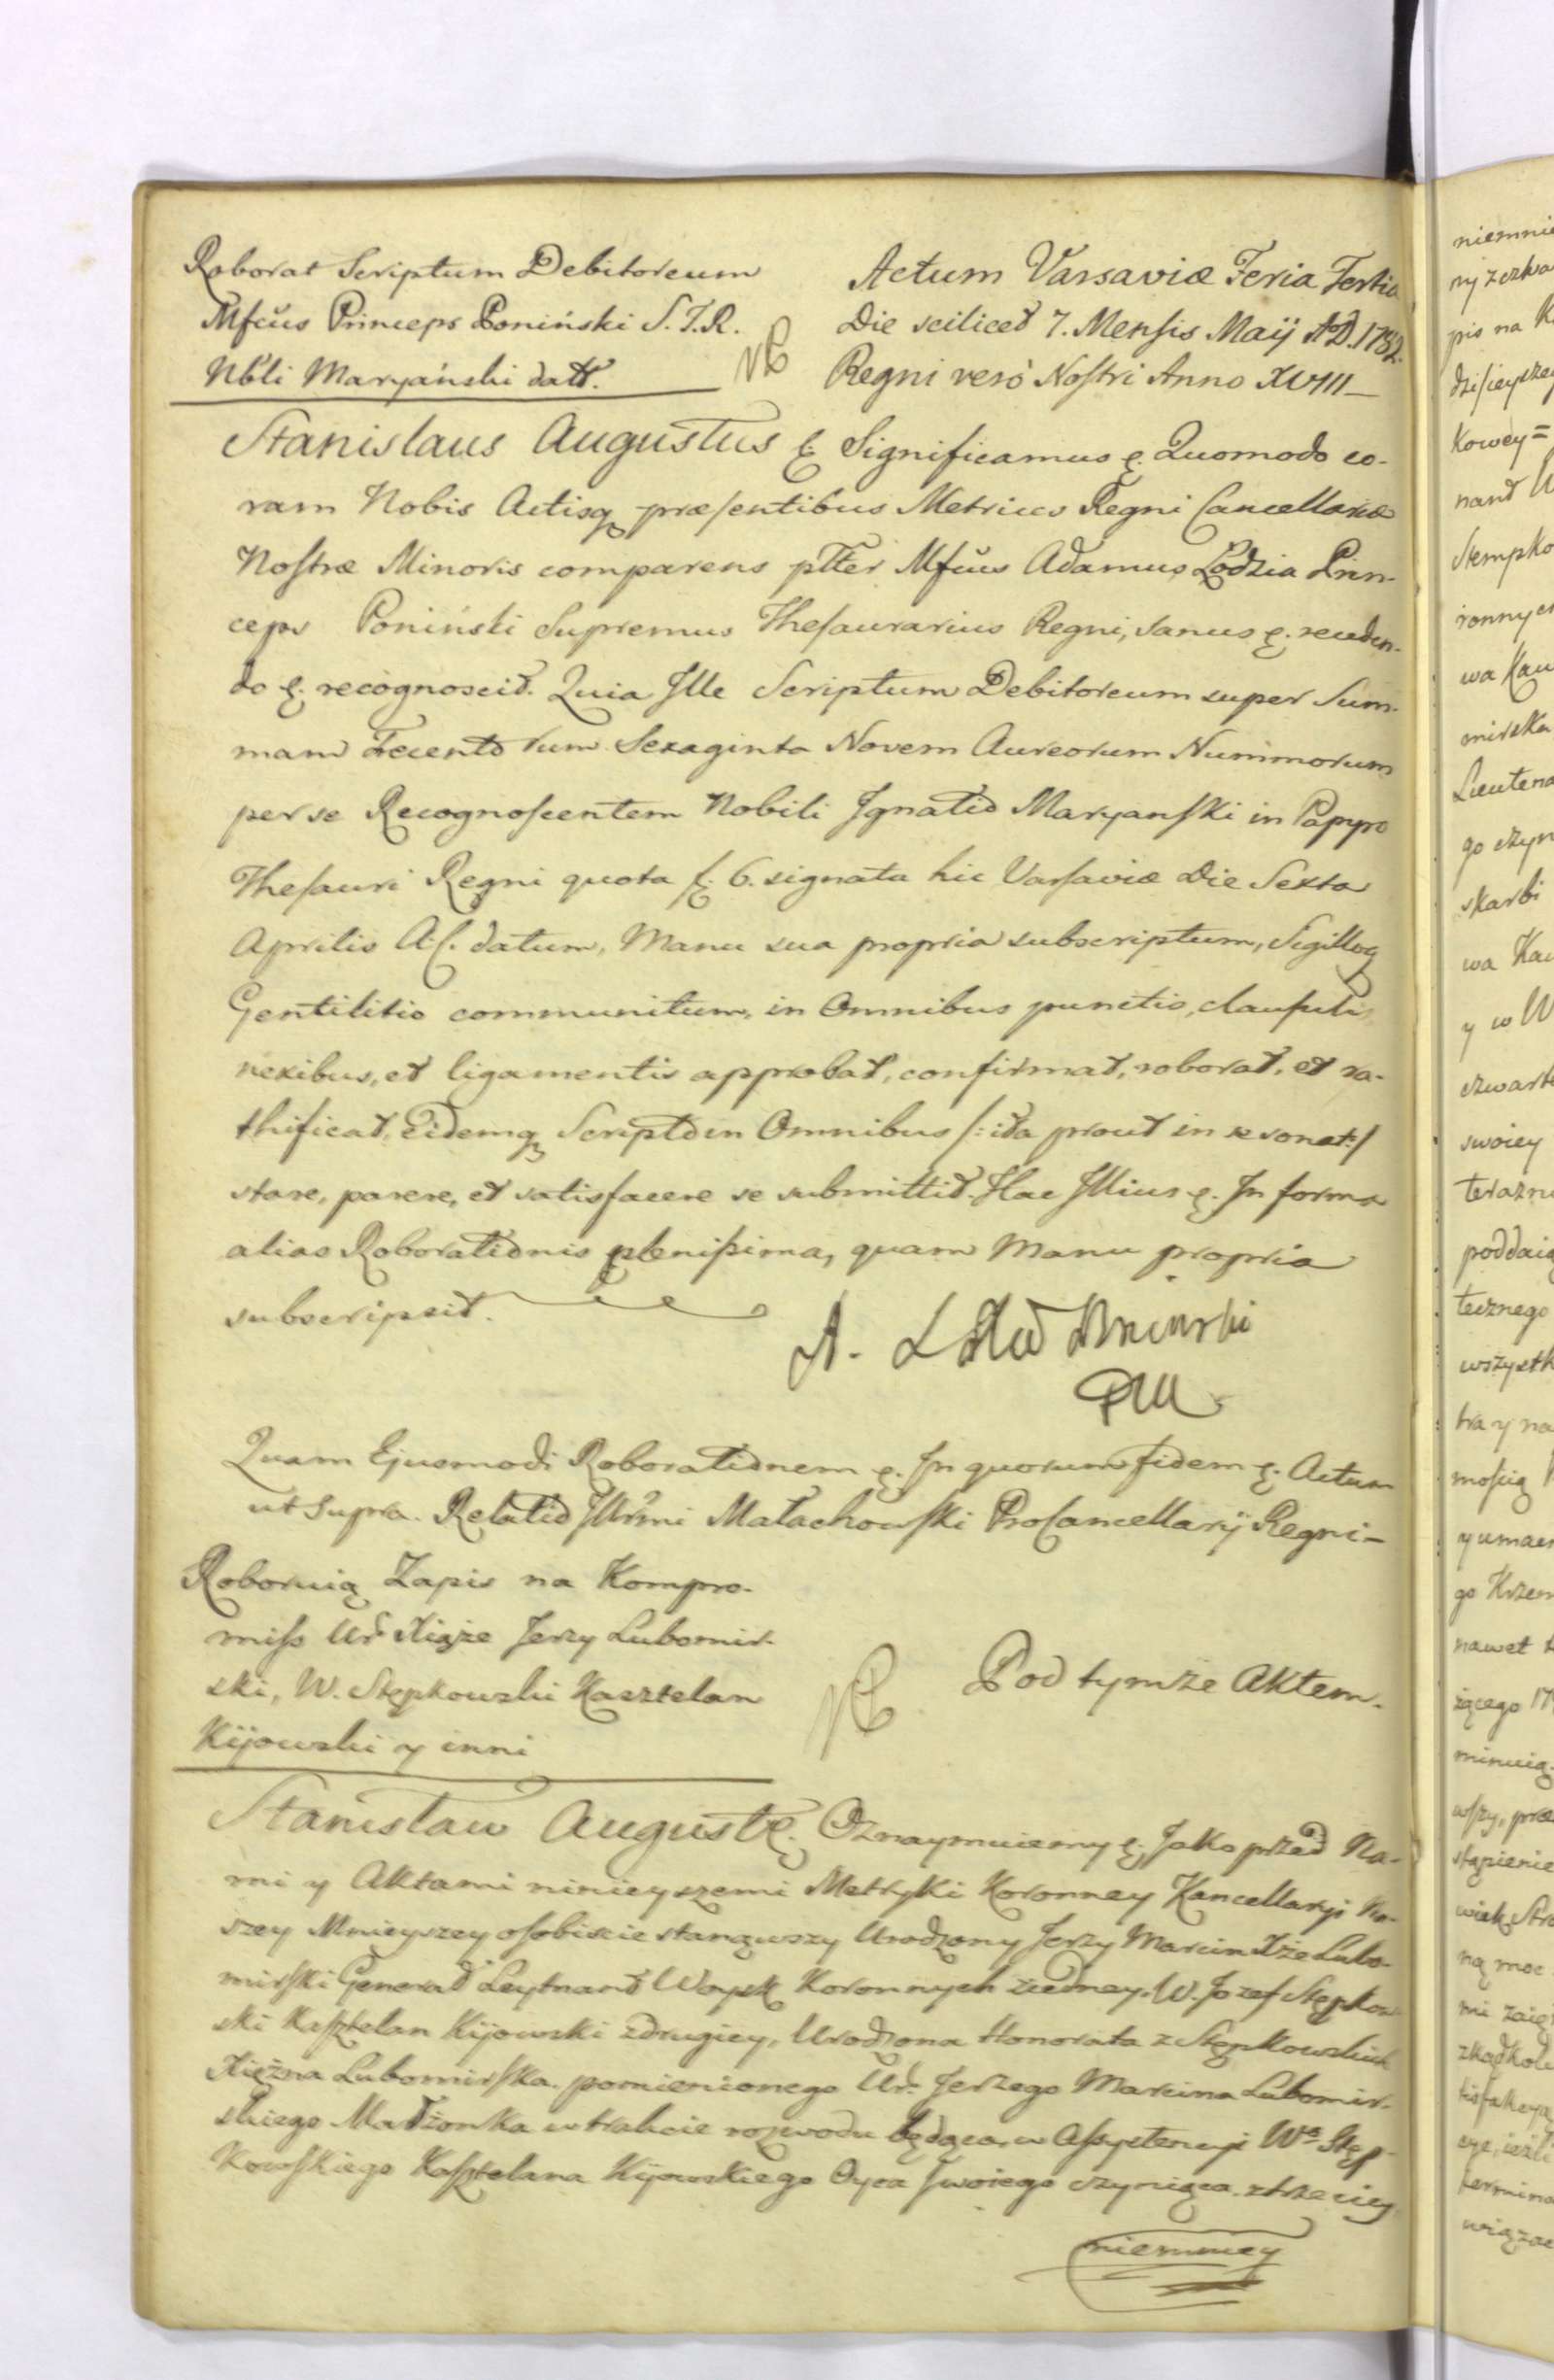 Roborat Scriptum Debitoreum
Mfcus Princeps Poniński S. T. R.
Nbli Maryański datt.
Actum Varsaviæ Feria Tertia
Die scilicet 7. Mensis Maij A.D. 1782.
Regni verò Nostri Anno XVIII
Stanislaus Augustus &. Significamus &. Quomodo co-
ram Nobis Actisq præsentibus Metrices Regni Cancellariæ
Nostræ Minoris comparens pltter Mfcus Adamus Lodzia Prin-
ceps Poniński Supremus Thesaurarius Regni, sanus &. receden-
do &. recognoscit. Quia Ille Scriptum Debitoreum super Sum-
mam Trecentorum Sexaginta Novem Aureorum Nummorum
per se Recognoscentem Nobili Ignatio Maryanski in Papyro
Thesauri Regni quota f. 6. signata hic Varsaviæ Die Sexta
Aprilis A. C. datum, Manu sua propria subscriptum, Sigilloq
Gentilitio communitum, in Omnibus punctis, clausulis
nexibus, et ligamentis approbat, confirmat, roborat, et ra-
thificat, Eidemq Scripto in Omnibus /: ita prout in se sonat :/
stare, parere, et satisfacere se submittit. Hac Illius &. In forma
alias Roborationis plenissima, quam Manu propria
subscripsit.
A. Poninski
Quam Ejusmodi Roborationem &. In quorum fidem &. Actum
ut Supra. Relatio Illrmi Małachowski ProCancellarij Regni
Roboruią Zapis na Kompro-
miss Ur. Xiąże Jerzy Lubomir-
ski, W. Stępkowski Kasztelan
Kijowski y inni
Pod tymże Aktem.
Stanisław August &. Oznaymuiemy &. Jako przed Na-
mi y Aktami ninieyszemi Metryki Koronney Kancellaryi Na-
szey Mnieyszey osobiscie stanąwszy Urodzony Jerzy Marcin Xże Lubo-
mirski Generał Leytnant Woysk Koronnych ziedney, W. Jozef Stępkow-
ski Kasztelan Kijowski zdrugiey, Urodzona Honorata z Stępkowskich
Xiężna Lubomirska pomienionego Ur. Jerzego Marcina Lubomir-
skiego Małżonka w trakcie rozwodu będąca, w Assystencyi Wo Stęp-
kowskiego Kasztelana Kijowskiego Oyca swoiego czyniąca ztrzeciey
niemniey
niemnie
pis na K
dzisieysze
Kowey=
nant
Stempko
ronnych
mirska
Lieutena
go czyn
skarbi
y w W
czwart
swoiey
terazni
poddaią
tecznego
wszystk
tra y na
go Krzem
nawet
żącego 17
ną moc